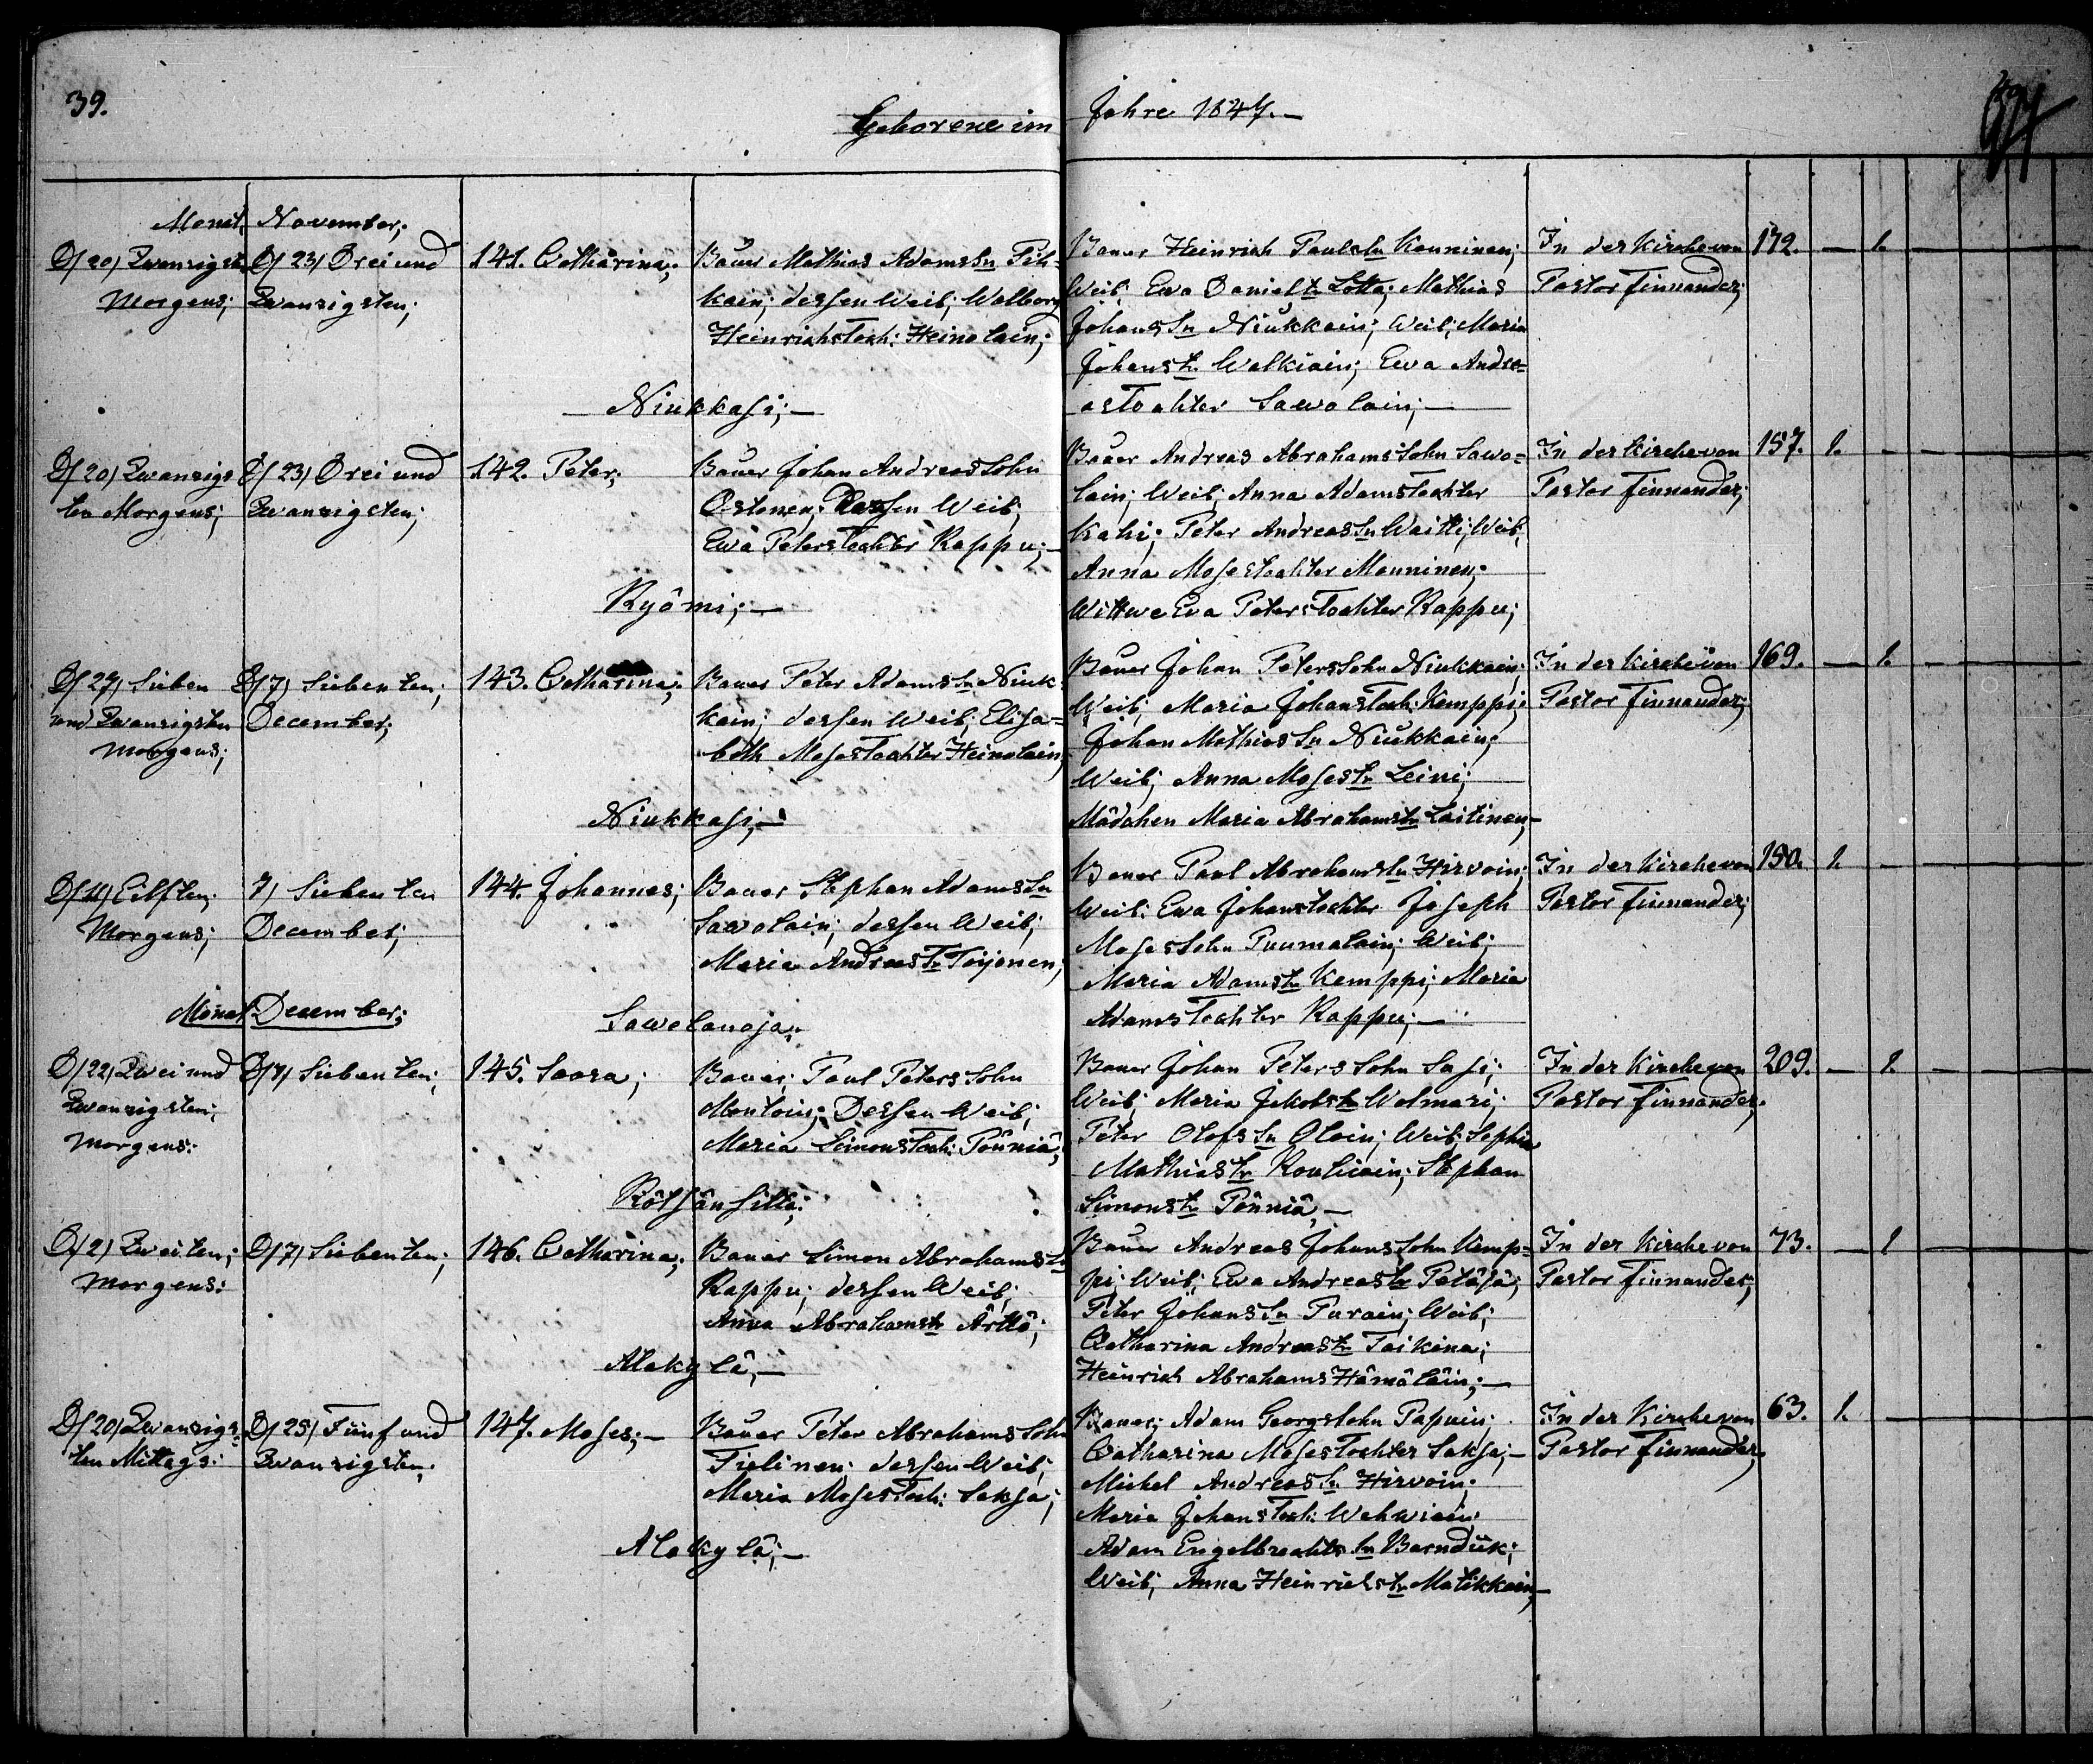 39.
Geborene im Jahre 1847.—
Monat November;
D/ 20) Zwanzigsten
Morgens;
D/ 23) Drei und
Zwanzigsten;
141. Catharina;
Bauer Mathias Adamssn Pih-
kain; dessen Weib; Walborg
Heinrichstoch: Heinolain;
Niukkasi;—
Bauer Heinrich Paulssn Konninen;
Weib; Ewa Danielstr Lotta; Mathias
Johanssn Niukkain; Weib; Maria
Johanstr. Walkiain; Ewa Andre-
astochter Sawolain;—
In der Kirche von
Pastor Finnander;
172. — 1.
D/ 20) Zwanzigs
ten Morgens;
D/ 23) Drei und
Zwanzigsten;
142. Peter;
Bauer Johan Andreassohn
Ostonen; Dessen Weib;
Ewa Peterstochter Rappu;—
Ryömi;—
Bauer Andreas Abrahamssohn Sawo=
lain; Weib; Anna Adamstochter
Kahi; Peter Andreassn Waitti; Weib,
Anna Mosestochter Monninen;
Wittwe Eva Peterstochter Rappu;
In der Kirche von
Pastor Finnander;
157. 1. —
D/ 27) Sieben
und Zwanzigsten
Morgens;
D/ 7) Siebenten;
December;
143. Catharina;
Bauer Peter Adamssn Niuk-
kain; dessen Weib; Elisa=
beth Mosestochter Heinolain;
Niukkasi;—
Bauer Johan Peterssohn Niukkain;
Weib; Maria Johanstoch: Kemppi;
Johan Mathiassn Niukkain;
Weib; Anna Mosestr. Leini;
Mädchen Maria Abrahamstr Laitinen;—
In der Kirche von
Pastor Finnander;
169. — 1. —
D/ 11) Eilften;
Morgens;
7) Siebenten
December;
144. Johannes;
Bauer Stephan Adamssn
Sawolain; dessen Weib;
Maria Andreastr. Toijonen;
Sawolanoja;
Bauer Paul Abrahamssn Hirvoin;
Weib: Ewa Johanstochter Joseph
Mosessohn Puumalain; Weib;
Maria Adamstr Kemppi; Maria
Adamstochter Rappu;—
In der Kirche von
Pastor Finnander;
150. 1. —
Monat December;
D/ 22) Zwei und
Zwanzigsten;
Morgens:
D/ 7) Siebenten;
145. Saara;
Bauer; Paul Peterssohn
Montoin; Dessen Weib;
Maria Simonstoch: Pönniä;
Rötsänsilta;
Bauer Johan Peterssohn Susi;
Weib; Maria Jakobstr Wolmari;
Peter Olofssn Oloin; Weib; Sophia
Mathiastr Rouhiain; Stephan
Simonstr Pönniä,—
In der Kirche von
Pastor Finnander,
209. — 1. —
D/ 2) Zweiten;
Morgens:
D/ 7) Siebenten;
146. Catharina;
Bauer Simon Abrahamssn
Rappu; dessen Weib;
Anna Abrahamstr Ärttö;
Alakylä,—
Bauer Andreas Johanssohn Kemp=
pi; Weib; Ewa Andreastr Petäjä;
Peter Johanssn Purain; Weib;
Catharina Andreastr Taikina;
Heinrich Abrahams Hämäläin;—
In der Kirche von
Pastor Finnander;
73. — 1 —
D/ 20) Zwanzigs-
ten Mittags:
D/ 25) Fünf und
Zwanzigsten;
147. Moses;—
Bauer Peter Abrahamssohn
Tielinen; dessen Weib;
Maria Mosestoch: Saksa;
Alakylä;—
Bauer; Adam Georgssohn Papuin;
Catharina Mosestochter Saksa;—
Michel Andreassn. Hirvoin;
Maria Johanstoch: Wehwiain
Adam Engelbrechtssn Barnduk;
Weib; Anna Heinrichstr Matikkain;—
In der Kirche von
Pastor Finnander,
63. 1. —